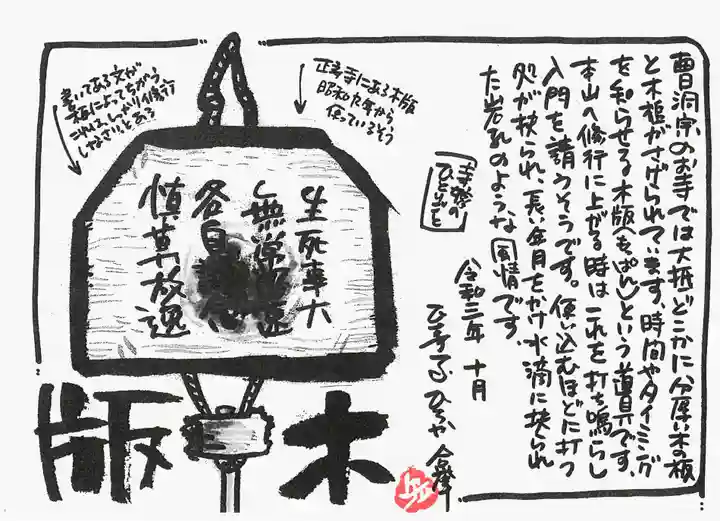 曹洞宗のお寺では大抵どこかに分厚い木の板
と木槌がさげられています。時間やタイミング
を知らせる木版(もっぱん)という道具です。
本山へ修行に上がる時はこれを打ち鳴らし
入門を請うそうです。使い込むほどに打つ
処が抉られ、長い年月をかけ水滴に抉られ
た岩乳のような風情です。
令和三年 十月
合掌
ひとりごと
正寿寺にある木版
昭和九年から
使っているそう
書いてある文が
板によってちがう
これは、しっかり修行
しなさいとある
生死事大
無常迅速
各自
慎莫放逸
木版